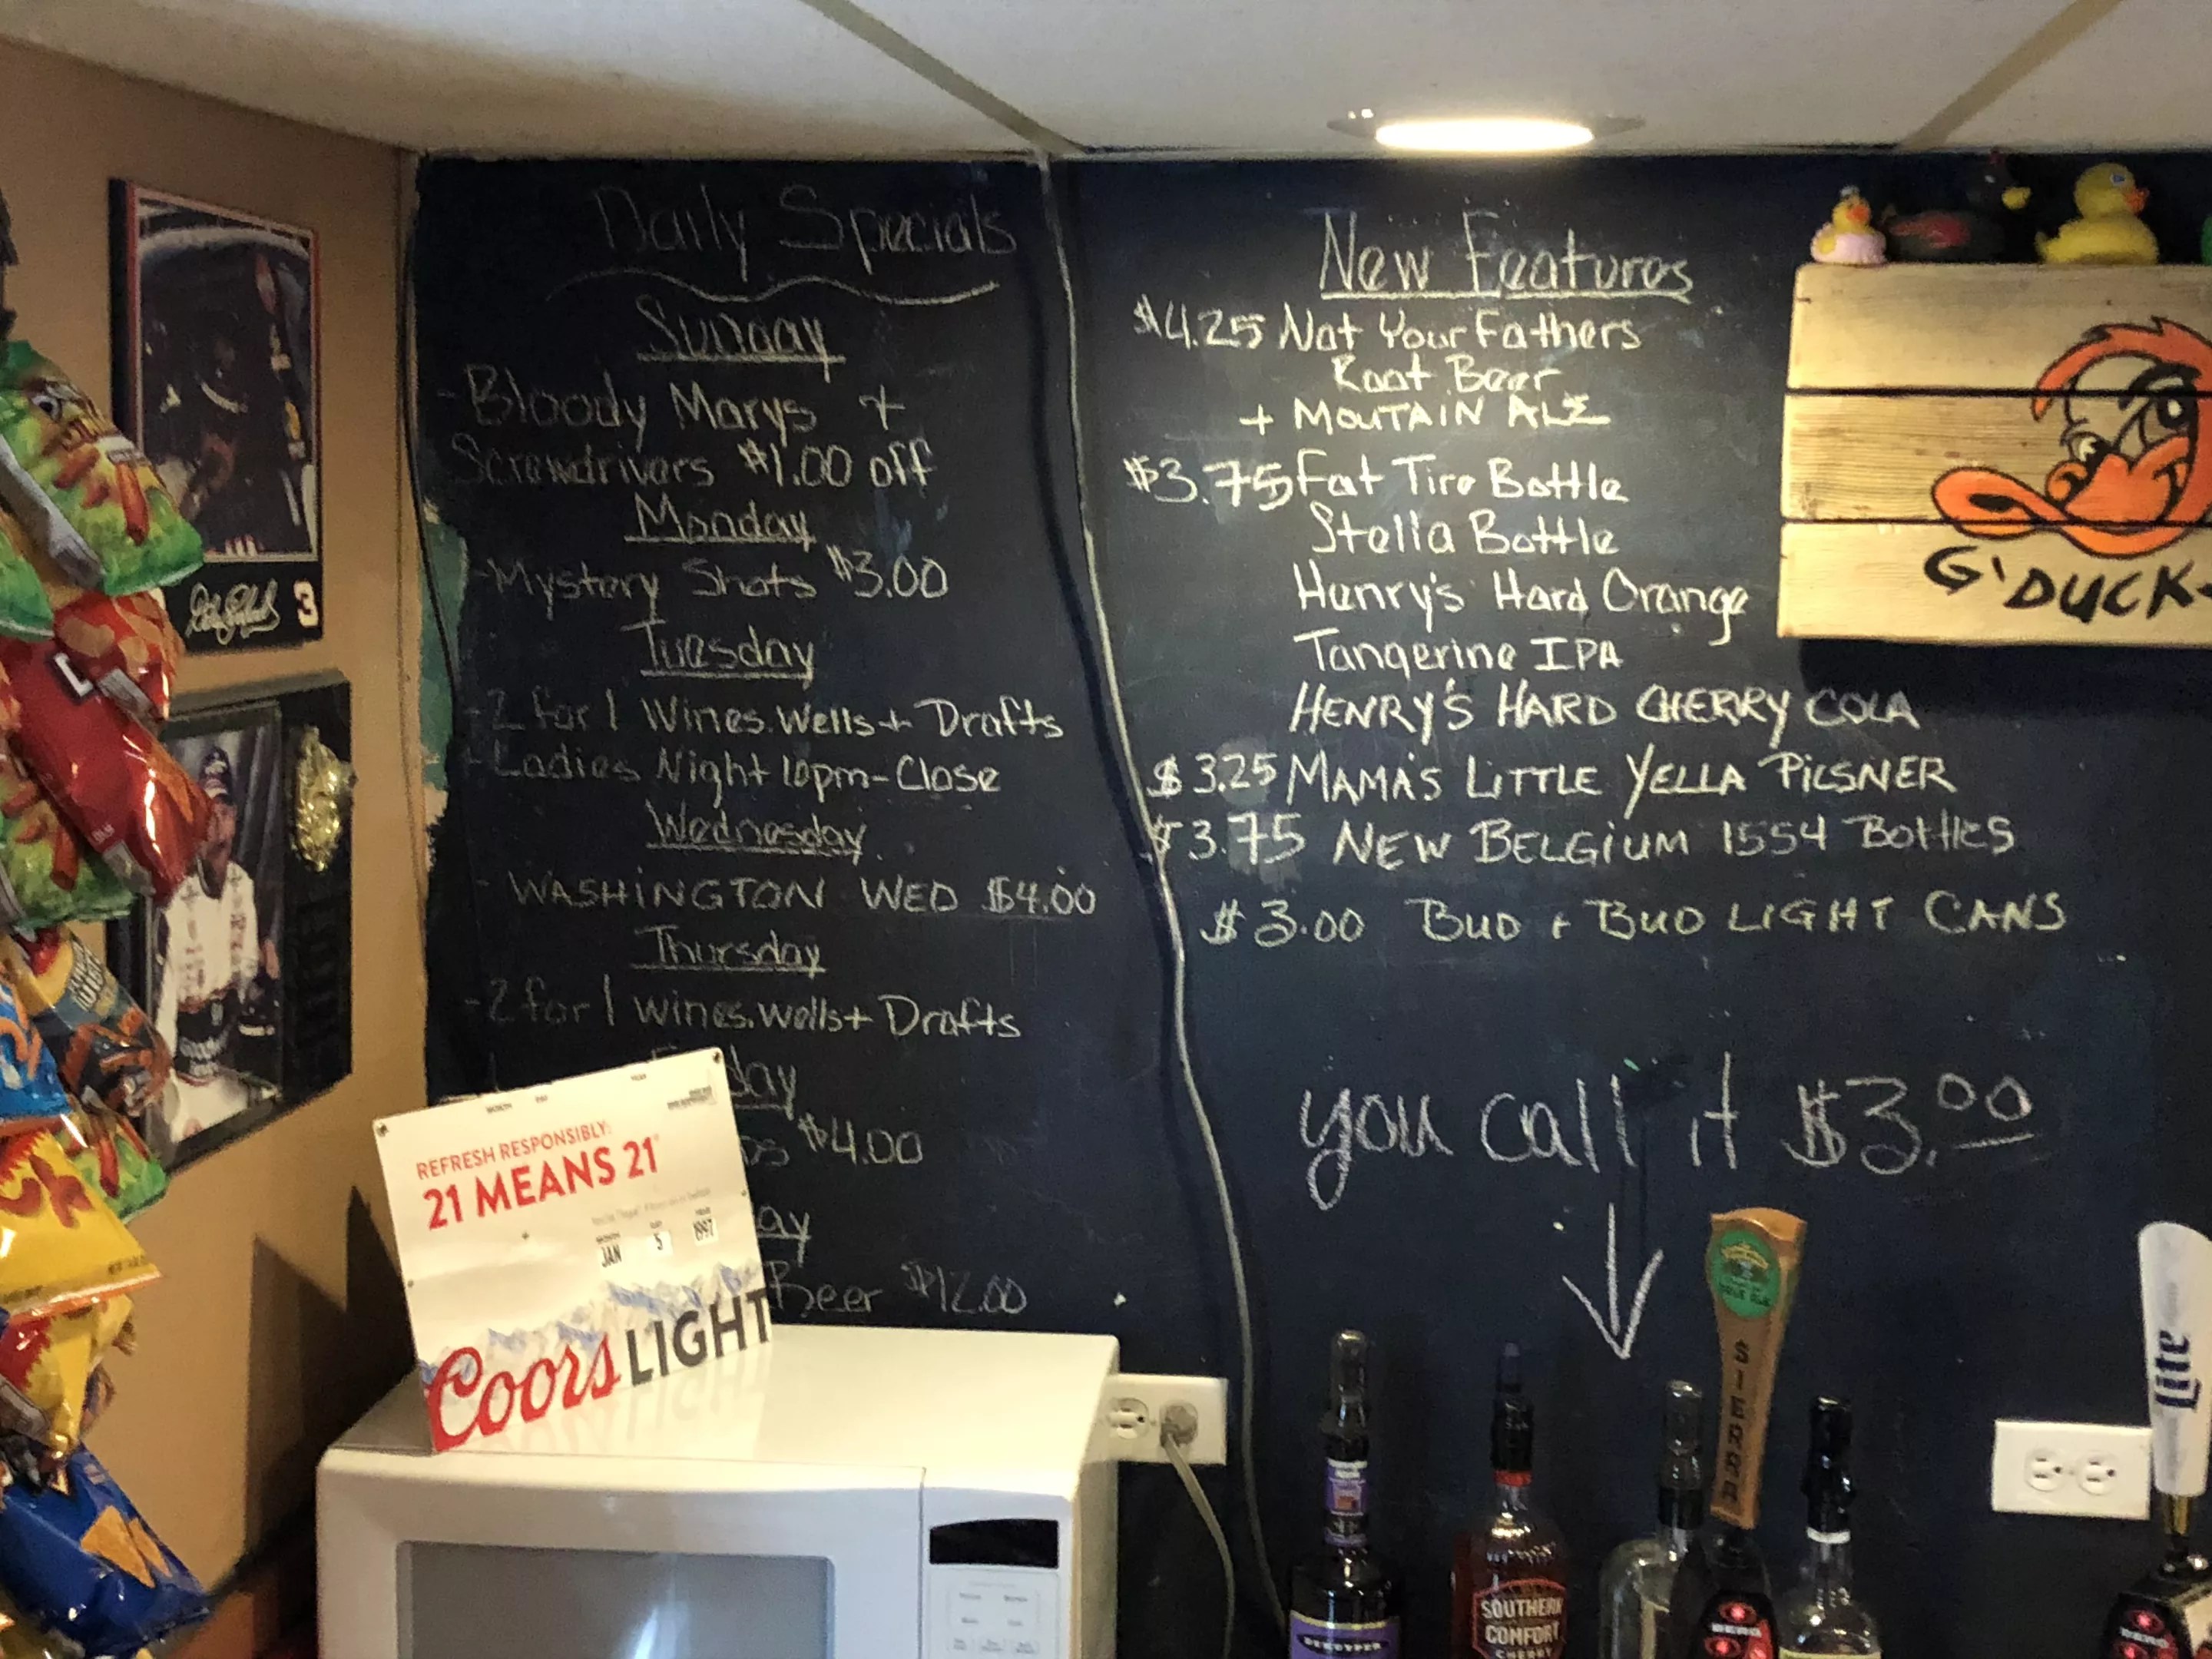 Daily Specials
Sunday
- Bloody Marys +
Screwdrivers $1.00 off
Monday
- Mystery Shots $3.00
Tuesday
- 2 for 1 Wines. Wells + Drafts
- Ladies Night 10pm - Close
Wednesday
- WASHINGTON WED $4.00
Thursday
- 2 for 1 wines. wells + Drafts
day
$4.00
ay
Beer $12.00
New Features
$4.25 Not Your Fathers
Root Beer
+ MOUTAIN ALE
$3.75 Fat Tire Bottle
Stella Bottle
Henry's Hard Orange
Tangerine IPA
HENRY'S HARD CHERRY COLA
$3.25 MAMA'S LITTLE YELLA PILSNER
$3.75 NEW BELGIUM 1554 BOTTLES
$3.00 BUD + BUD LIGHT CANS
you call it $3.00
G'DUCK-
3
REFRESH RESPONSIBLY:
21 MEANS 21
MONTH DAY YEAR
JAN 5 1997
Coors LIGHT
SIERRA
Lite
DEKUYPER
SOUTHERN
COMFORT
CHERRY